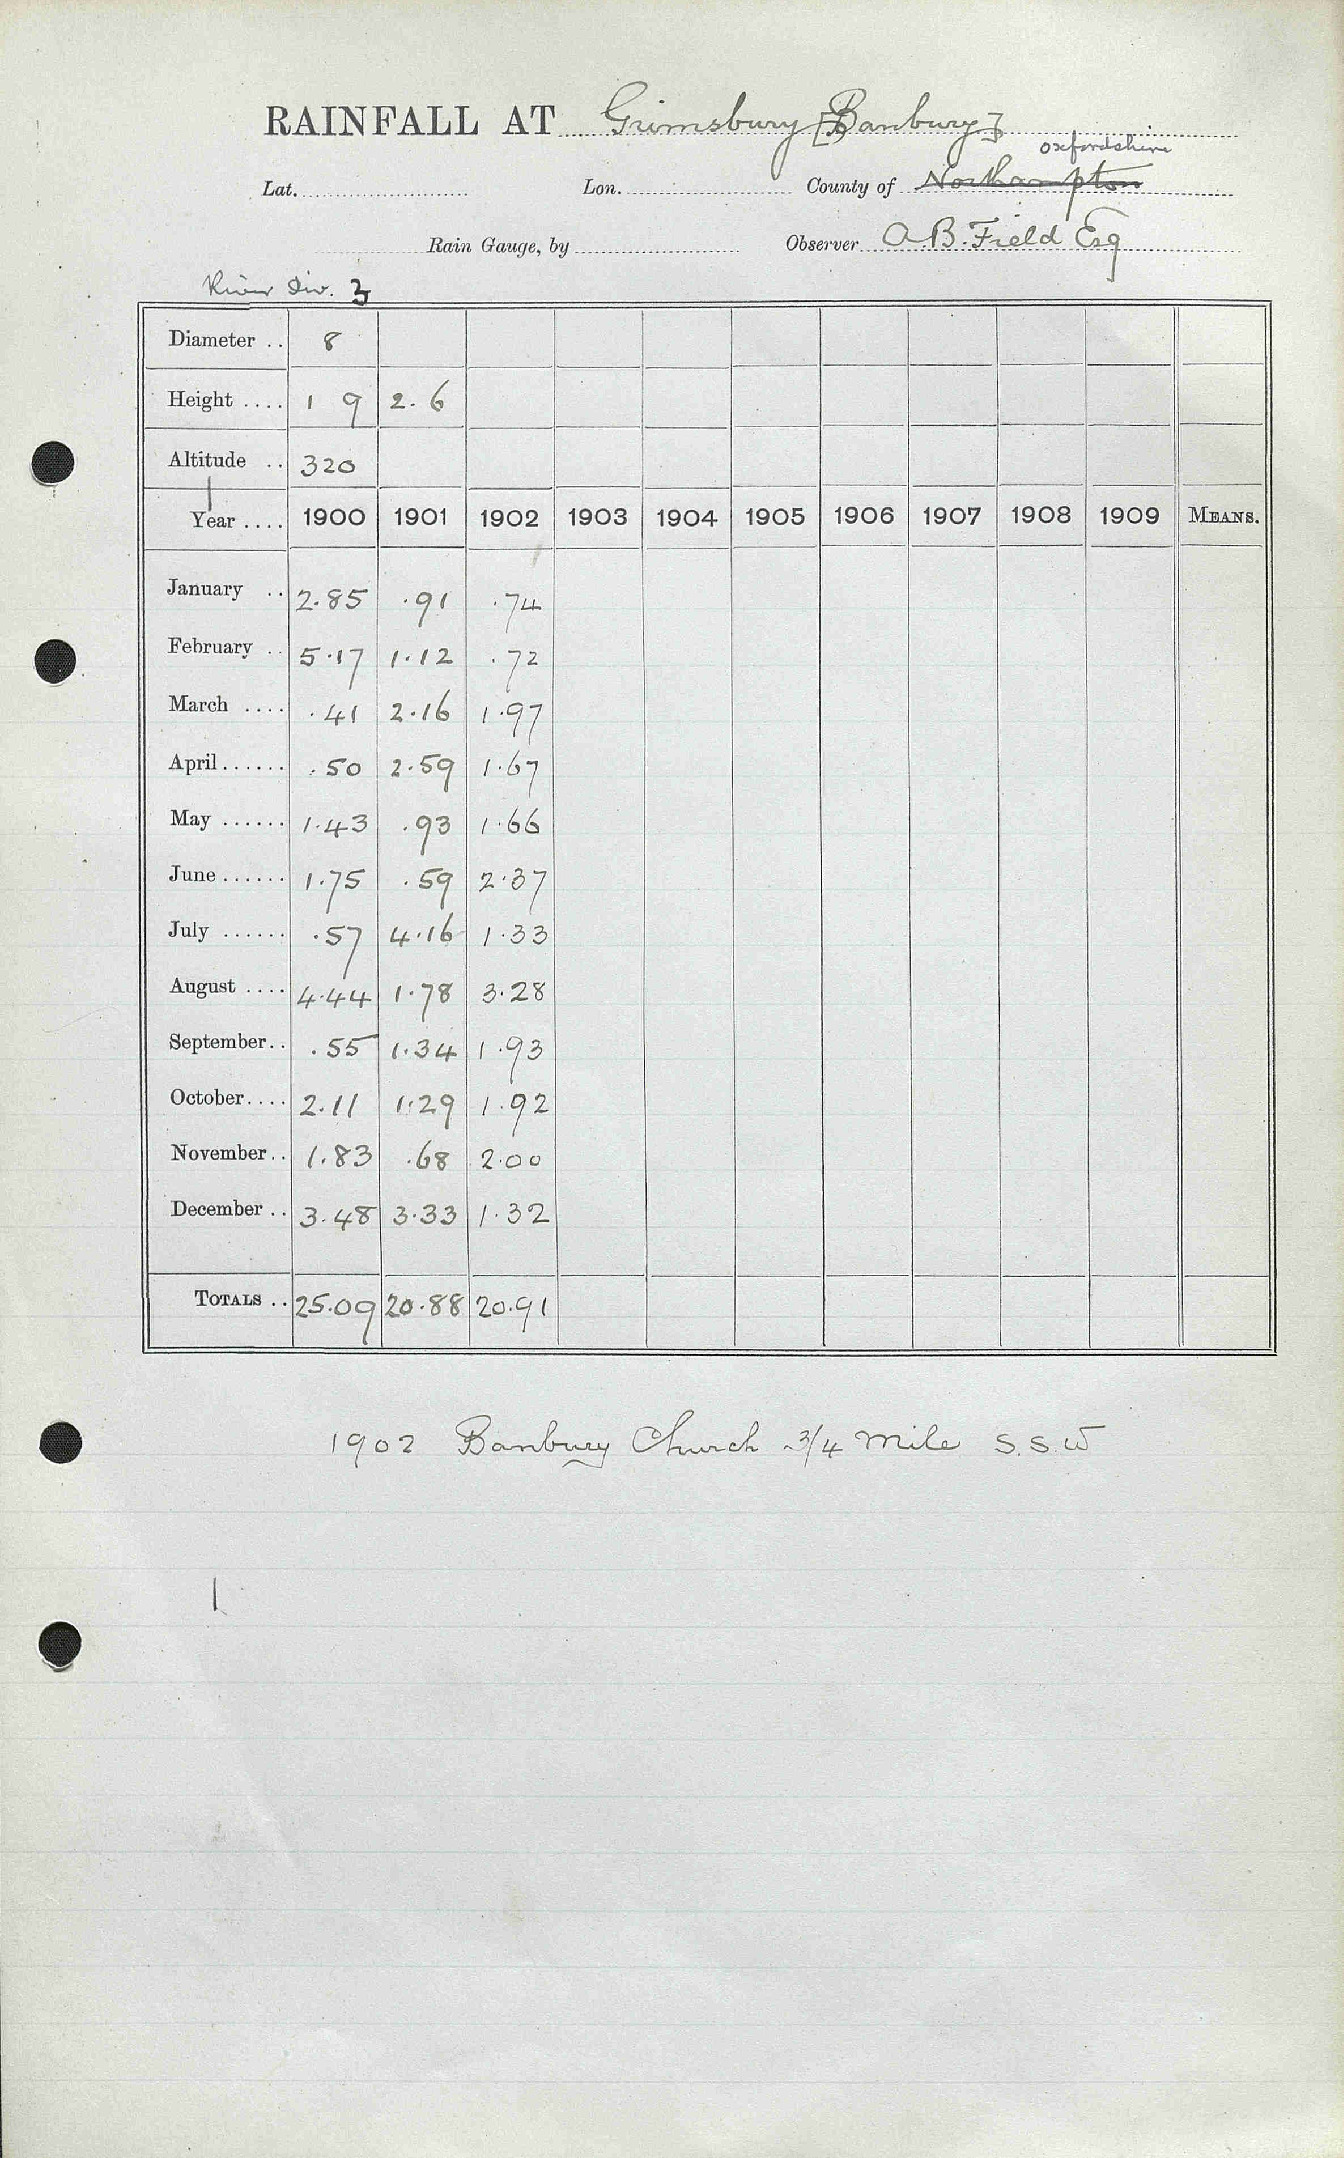 RAINFALL AT Grimsbury [Banbury]
Oxfordshire
Lat. Lon. County of Northampton
Rain Gauge, by Observer A B. Field Esq
River Div. 3
Diameter .. 8
Height .... 1 9 2.6
Altitude .. 320
Year .... 1900 1901 1902 1903 1904 1905 1906 1907 1908 1909 MEANS.
January .. 2.85 .91 .74
February .. 5.17 1.12 .72
March .... .41 2.16 1.97
April...... .50 2.59 1.67
May ...... 1.43 .93 1.66
June ...... 1.75 .59 2.37
July ...... .57 4.16 1.33
August .... 4.44 1.78 3.28
September.. .55 1.34 1.93
October.... 2.11 1.29 1.92
November.. 1.83 .68 2.00
December .. 3.48 3.33 1.32
TOTALS .. 25.09 20.88 20.91
1902 Banbury Church 3/4 mile S.S.W